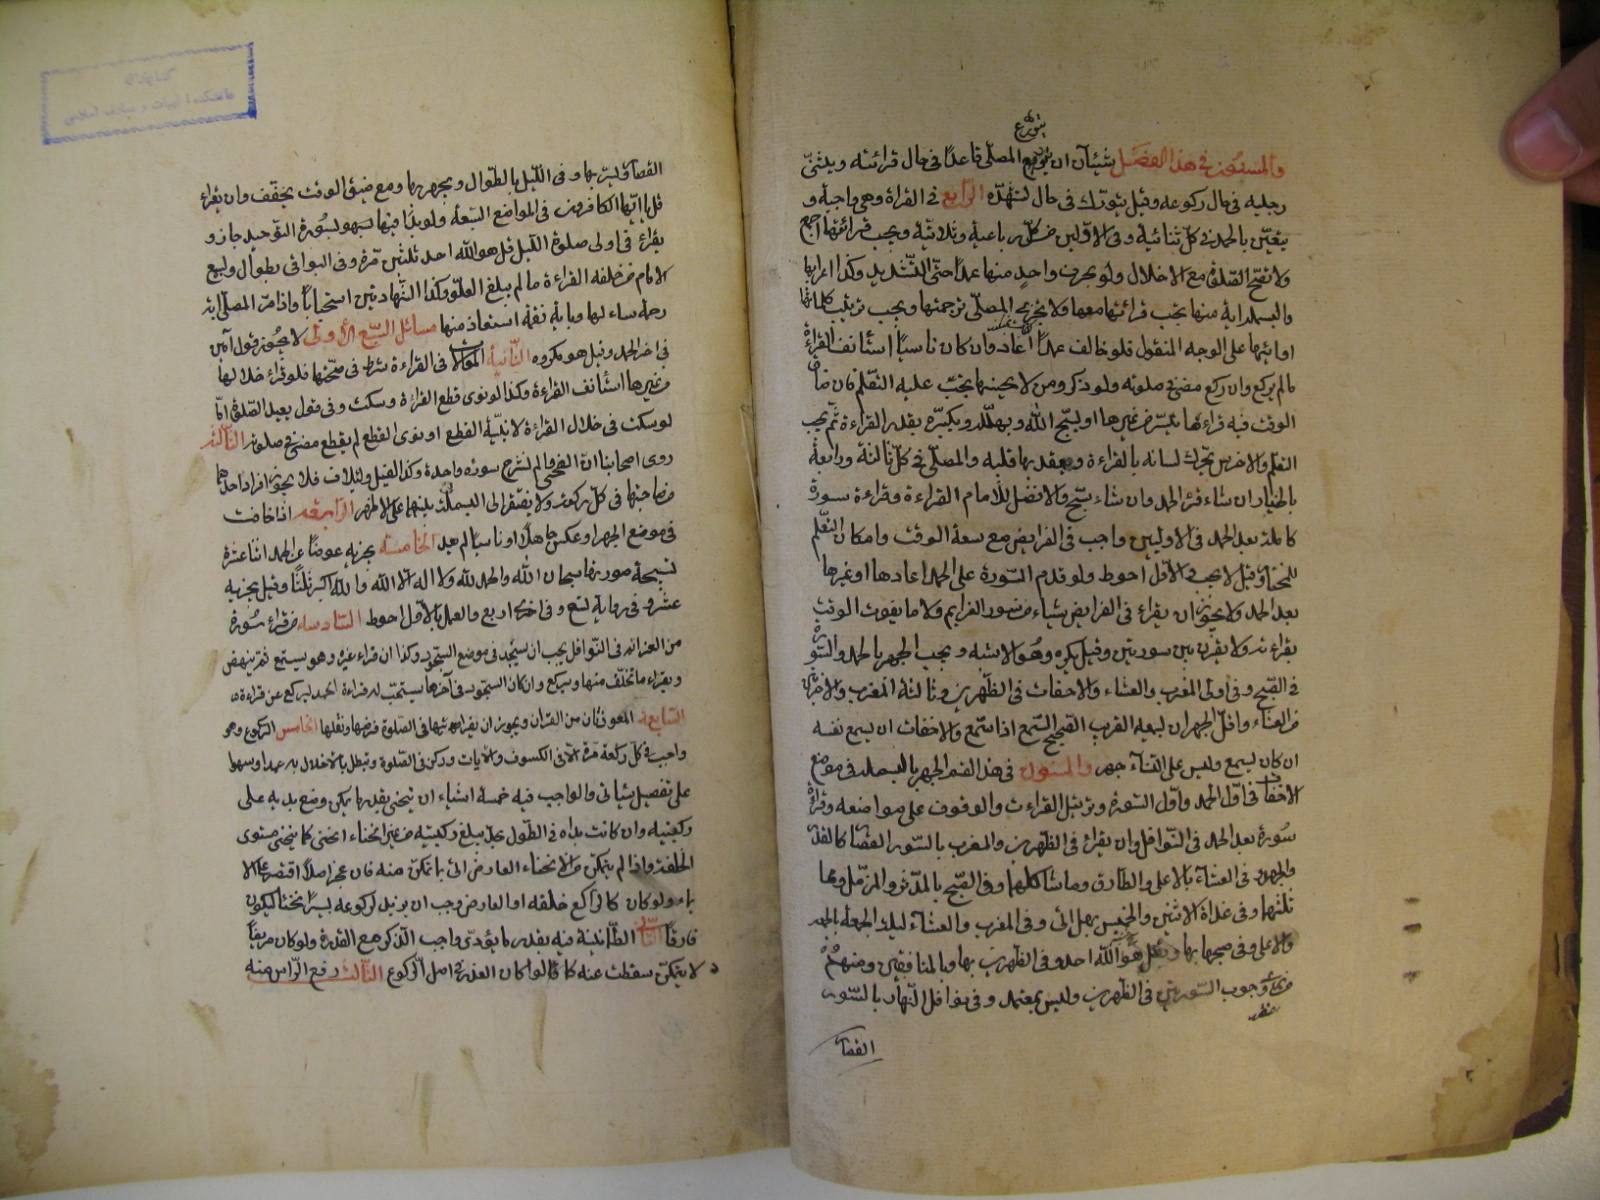 يتورع
والمسنون في هذا الفصل شيئان ان يتربع المصلي قاعدا في حال قرائته ويثني
رجليه في حال ركوعه وقيل يتورك في حال تشهده الرابع في القراءة وهي واجبة و
يتعين بالحمد في كل ثنائية وفي الاوليين من كل رباعية وثلاثية ويجب قرائتها اجمع
ولا تصح الصلوة مع الاخلال ولو بحرف واحد منها عمدا حتى التشديد وكذا اعرابها
والبسملة اية منها يجب قرائتها معها ولا يجزي المصلي ترجمتها ويجب ترتيب كلماتها
وايها على الوجه المنقول فلو خالف عمدا اعاد وان كان ناسيا استأنف القراءة
ما لم يركع وان ركع مضى في صلوته ولو ذكر ومن لا يحسنها يجب عليه التعلم فان ضاق
الوقت فيه قراء ما تيسر من غيرها او يسبح الله ويهلله ويكبره بقدر القراءة ثم يجب
التعلم والاخرس يحرك لسانه بالقراءة ويعقد بها قلبه والمصلي في كل ثالثة ورابعة
بالخيار ان شاء قرء الحمد وان شاء سبح والافضل للامام القراءة وقراءة سورة
كاملة بعد الحمد في الاوليين واجب في الفرايض مع سعة الوقت وامكان التعلم
للمختار وقيل لا يجب في الاول احوط ولو قدم السورة على الحمد اعادها او غيرها
بعد الحمد ولا يجوز ان يقراء في الفرايض شياء من سور العزايم ولا ما يفوت الوقت
بقرائته ولا يقرن بين سورتين وقيل يكره وهو الاشبه ويجب الجهر بالحمد والسورة
في الصبح وفي اولى المغرب والعشاء والاخفات في الظهرين وثالثة المغرب والاخرتين
من العشاء واقل الجهر ان يسمعه القريب الصحيح السمع اذا استمع والاخفات ان يسمع نفسه
ان كان يسمع وليس على النساء جهر والمسنون في هذا القسم الجهر بالبسملة في موضع
الاخفات في اول الحمد واول السورة وترتيل القراءت والوقوف على مواضعه وقراءة
سورة بعد الحمد في النوافل وان يقراء في الظهرين والمغرب بالسور القصار كالقدر
والجحد وفي العشاء بالاعلى والطارق وما شاكلهما وفي الصبح بالمدثر والمزمل وما
ماثلهما وفي غداة الاثنين والخميس بهل اتى وفي المغرب والعشاء ليلة الجمعة بالجمعة
والاعلى وفي صبحها بها وبقل هو الله احد وفي الظهرين بها وبالمنافقين ومنهم من
يرى وجوب السورتين في الظهرين وليس بمعتمد وفي نوافل النهار بالسور
القصار
القصار ويسر بها وفي الليل بالطوال ويجهر بها ومع ضيق الوقت يخفف وان يقراء
قل يا ايها الكافرون في المواضع السبعة ولو بدأ فيها بسهو بسورة التوحيد جاز و
يقراء في اولى صلوة الليل قل هو الله احد ثلثين مرة وفي البواقي بطوال ويسمع
الامام من خلفه القراءة ما لم يبلغ العلو وكذا الشهادتين استحبابا واذا مر المصلي باية
رحمة سأءلها وباية نقمة استعاذ منها مسائل السبع الاولى لا يجوز قول آمين
في اخر الحمد وقيل هو مكروه الثانية الموالات في القراءة شرط في صحتها فلو قراء خلالها
من غيرها استأنف القراءة وكذا لو نوى قطع القراءة وسكت وفي قول يعيد الصلوة اما
لو سكت في خلال القراءة لا بنية القطع او نوى القطع لم يقطع مضى في صلوته الثالثة
روى اصحابنا ان الضحى والم نشرح سورة واحدة وكذا الفيل ولايلاف فلا يجوز افراد احدهما
من صاحبتها في كل ركعة ولا يفتقر الى البسملة بينهما على الاظهر الرابعة اذا خافت
في موضع الجهر او عكس جاهلا او ناسيا لم يعد الخامسة يجزيه عوضا عن الحمد اثنا عشرة
تسبيحة صورتها سبحان الله والحمد لله ولا اله الا الله والله اكبر ثلثا وقيل يجزيه
عشر وفي رواية تسع وفي اخرى اربع والعمل بالاول احوط السادسة من قراء سورة
من العزائم في النوافل يجب ان يسجد في موضع السجود وكذا ان قراء غيره وهو يستمع ثم ينهض
ويقراء ما تخلف منها ويركع وان كان السجود في آخرها يستحب له قراءة الحمد ليركع عن قراءة
السابعة المعوذتان من القران ويجوز ان يقراء بهما في الصلوة فرضها ونفلها الخامس الركوع وهو
واجب في كل ركعة مرة الا في الكسوف والآيات وركن في الصلوة وتبطل بالاخلال به عمدا وسهوا
على تفصيل سياتي والواجب فيه خمسة اشياء ان ينحني بقدر ما يمكن وضع يديه على
ركبتيه وان كانت يداه في الطول بحيث يبلغ ركبتيه من غير انحناء انحنى كما ينحني مستوى
الخلقة واذا لم يتمكن من الانحناء العارض اتى بما تمكن منه فان عجز اصلا اقتصر على الا
يماء ولو كان كالراكع خلقة او العارض وجب ان يزيد لركوعه يسيرا انحناء ليكون
فارقا الثاني الطمانينة فيه بقدر ما يؤدي واجب الذكر مع القدرة ولو كان مريضا
لا يتمكن سقطت عنه كما قالوا كان العذر في اصل الركوع الثالث رفع الراس منه